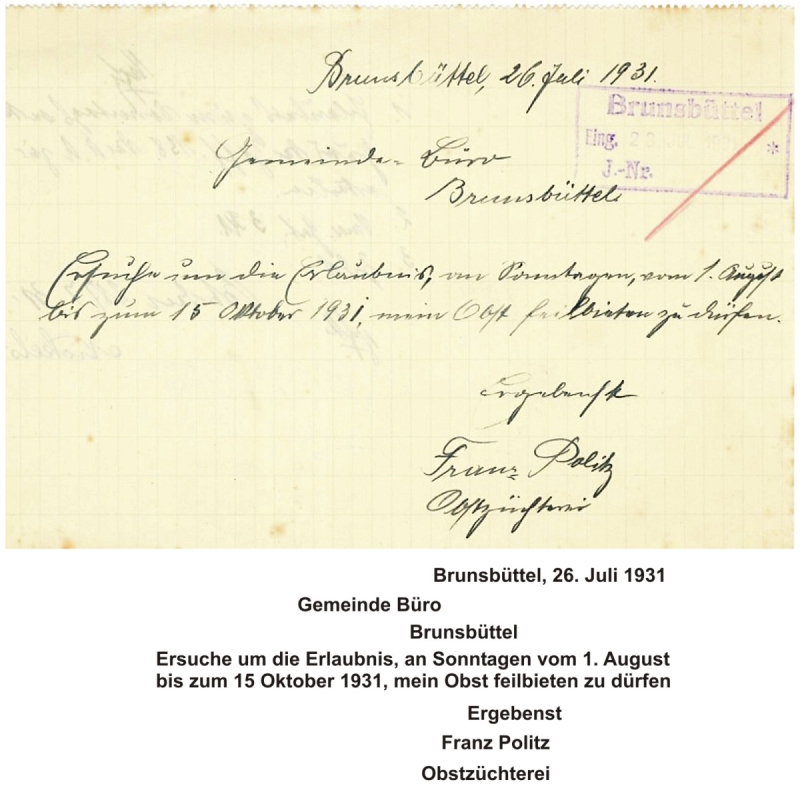 Brunsbüttel, 26. Juli 1931.
Brunsbüttel
Eing.
J.-Nr. *
Gemeinde-Büro
Brunsbüttel
Ersuche um die Erlaubnis, an Sonntagen, vom 1. August
bis zum 15 Oktober 1931, mein Obst feilbieten zu dürfen.
Ergebenst
Franz Politz
Obstzüchterei
Brunsbüttel, 26. Juli 1931
Gemeinde Büro
Brunsbüttel
Ersuche um die Erlaubnis, an Sonntagen vom 1. August
bis zum 15 Oktober 1931, mein Obst feilbieten zu dürfen
Ergebenst
Franz Politz
Obstzüchterei